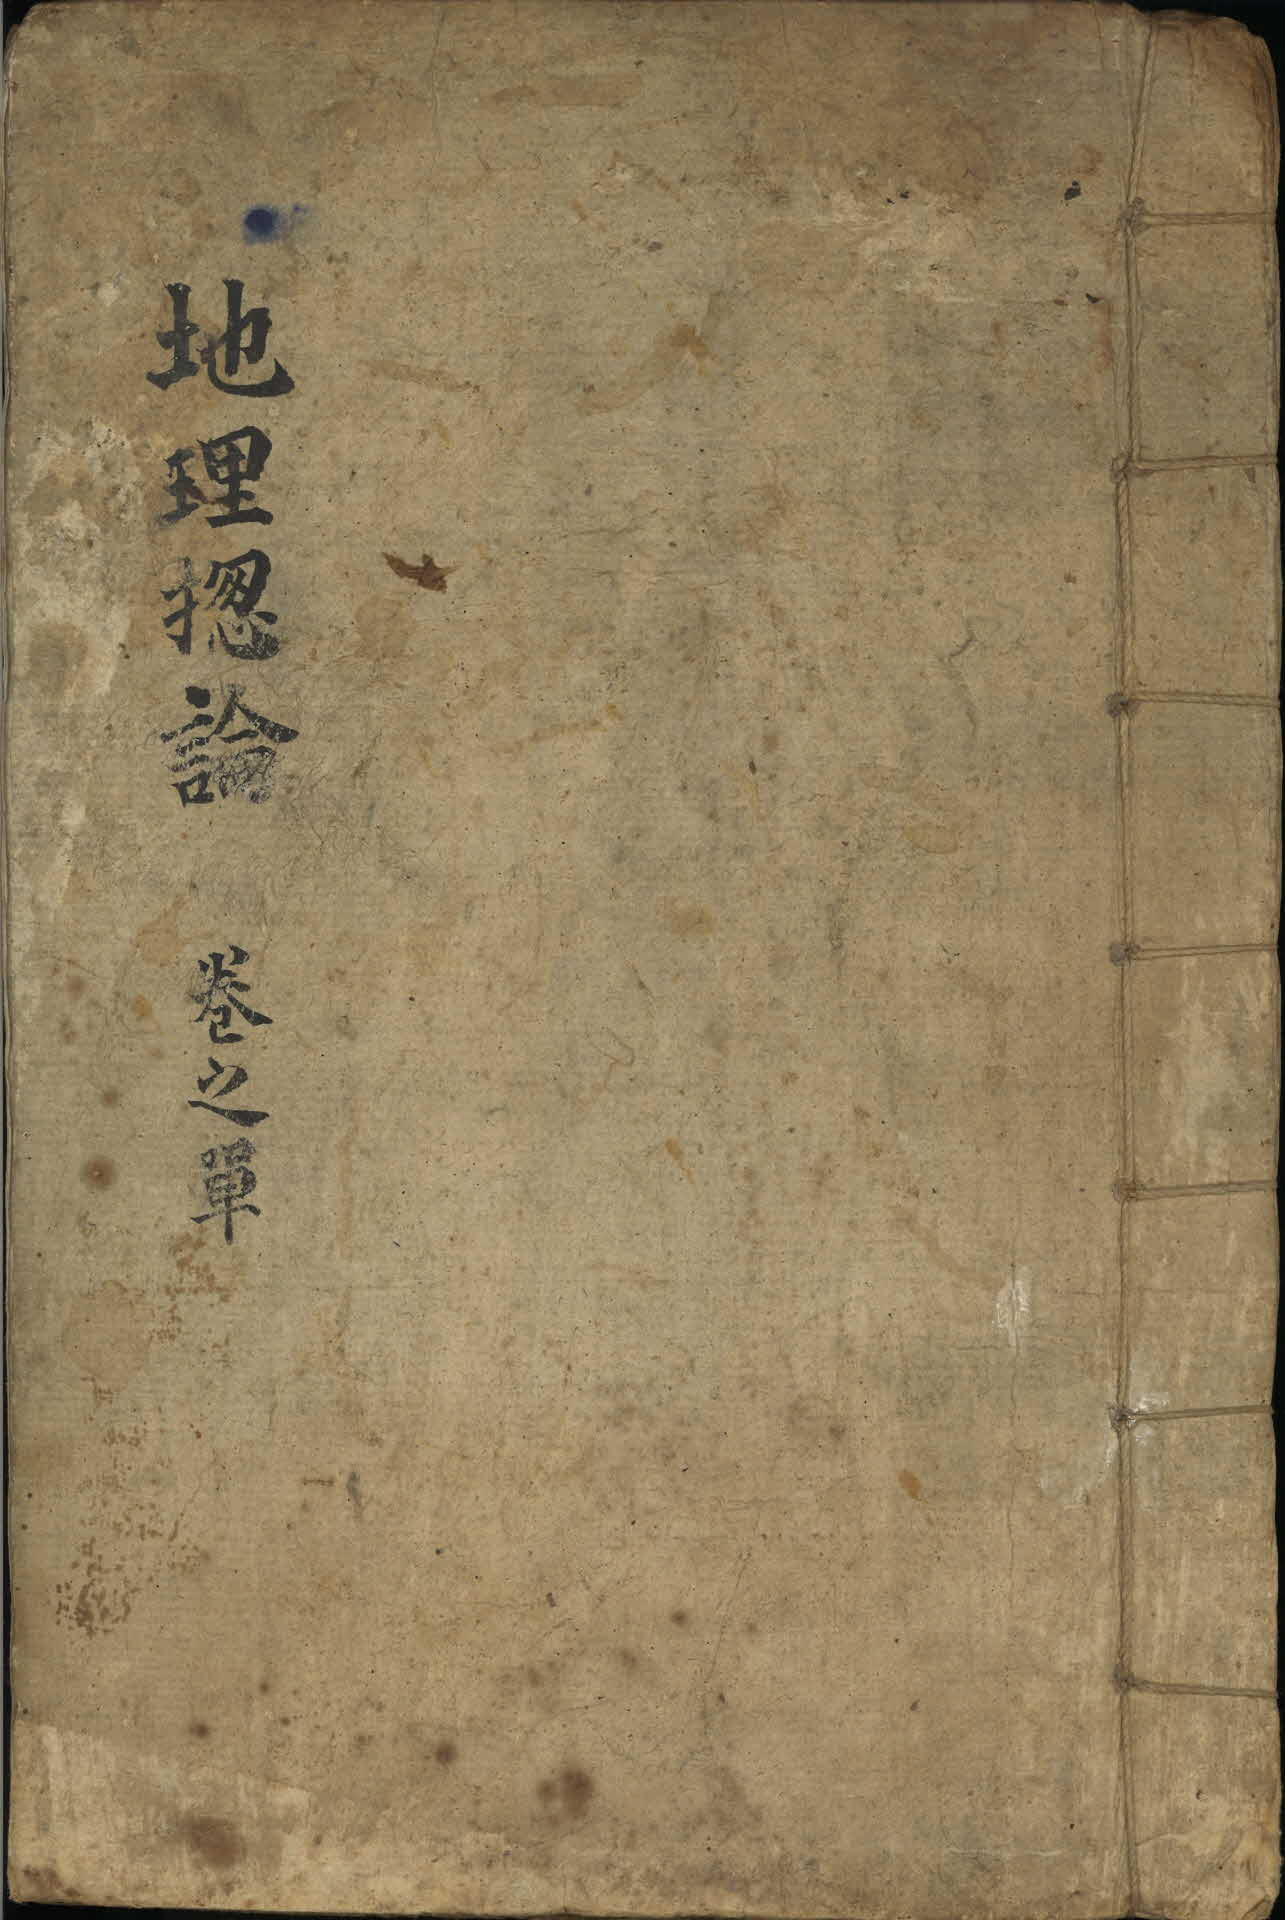 地理摠論
卷之單